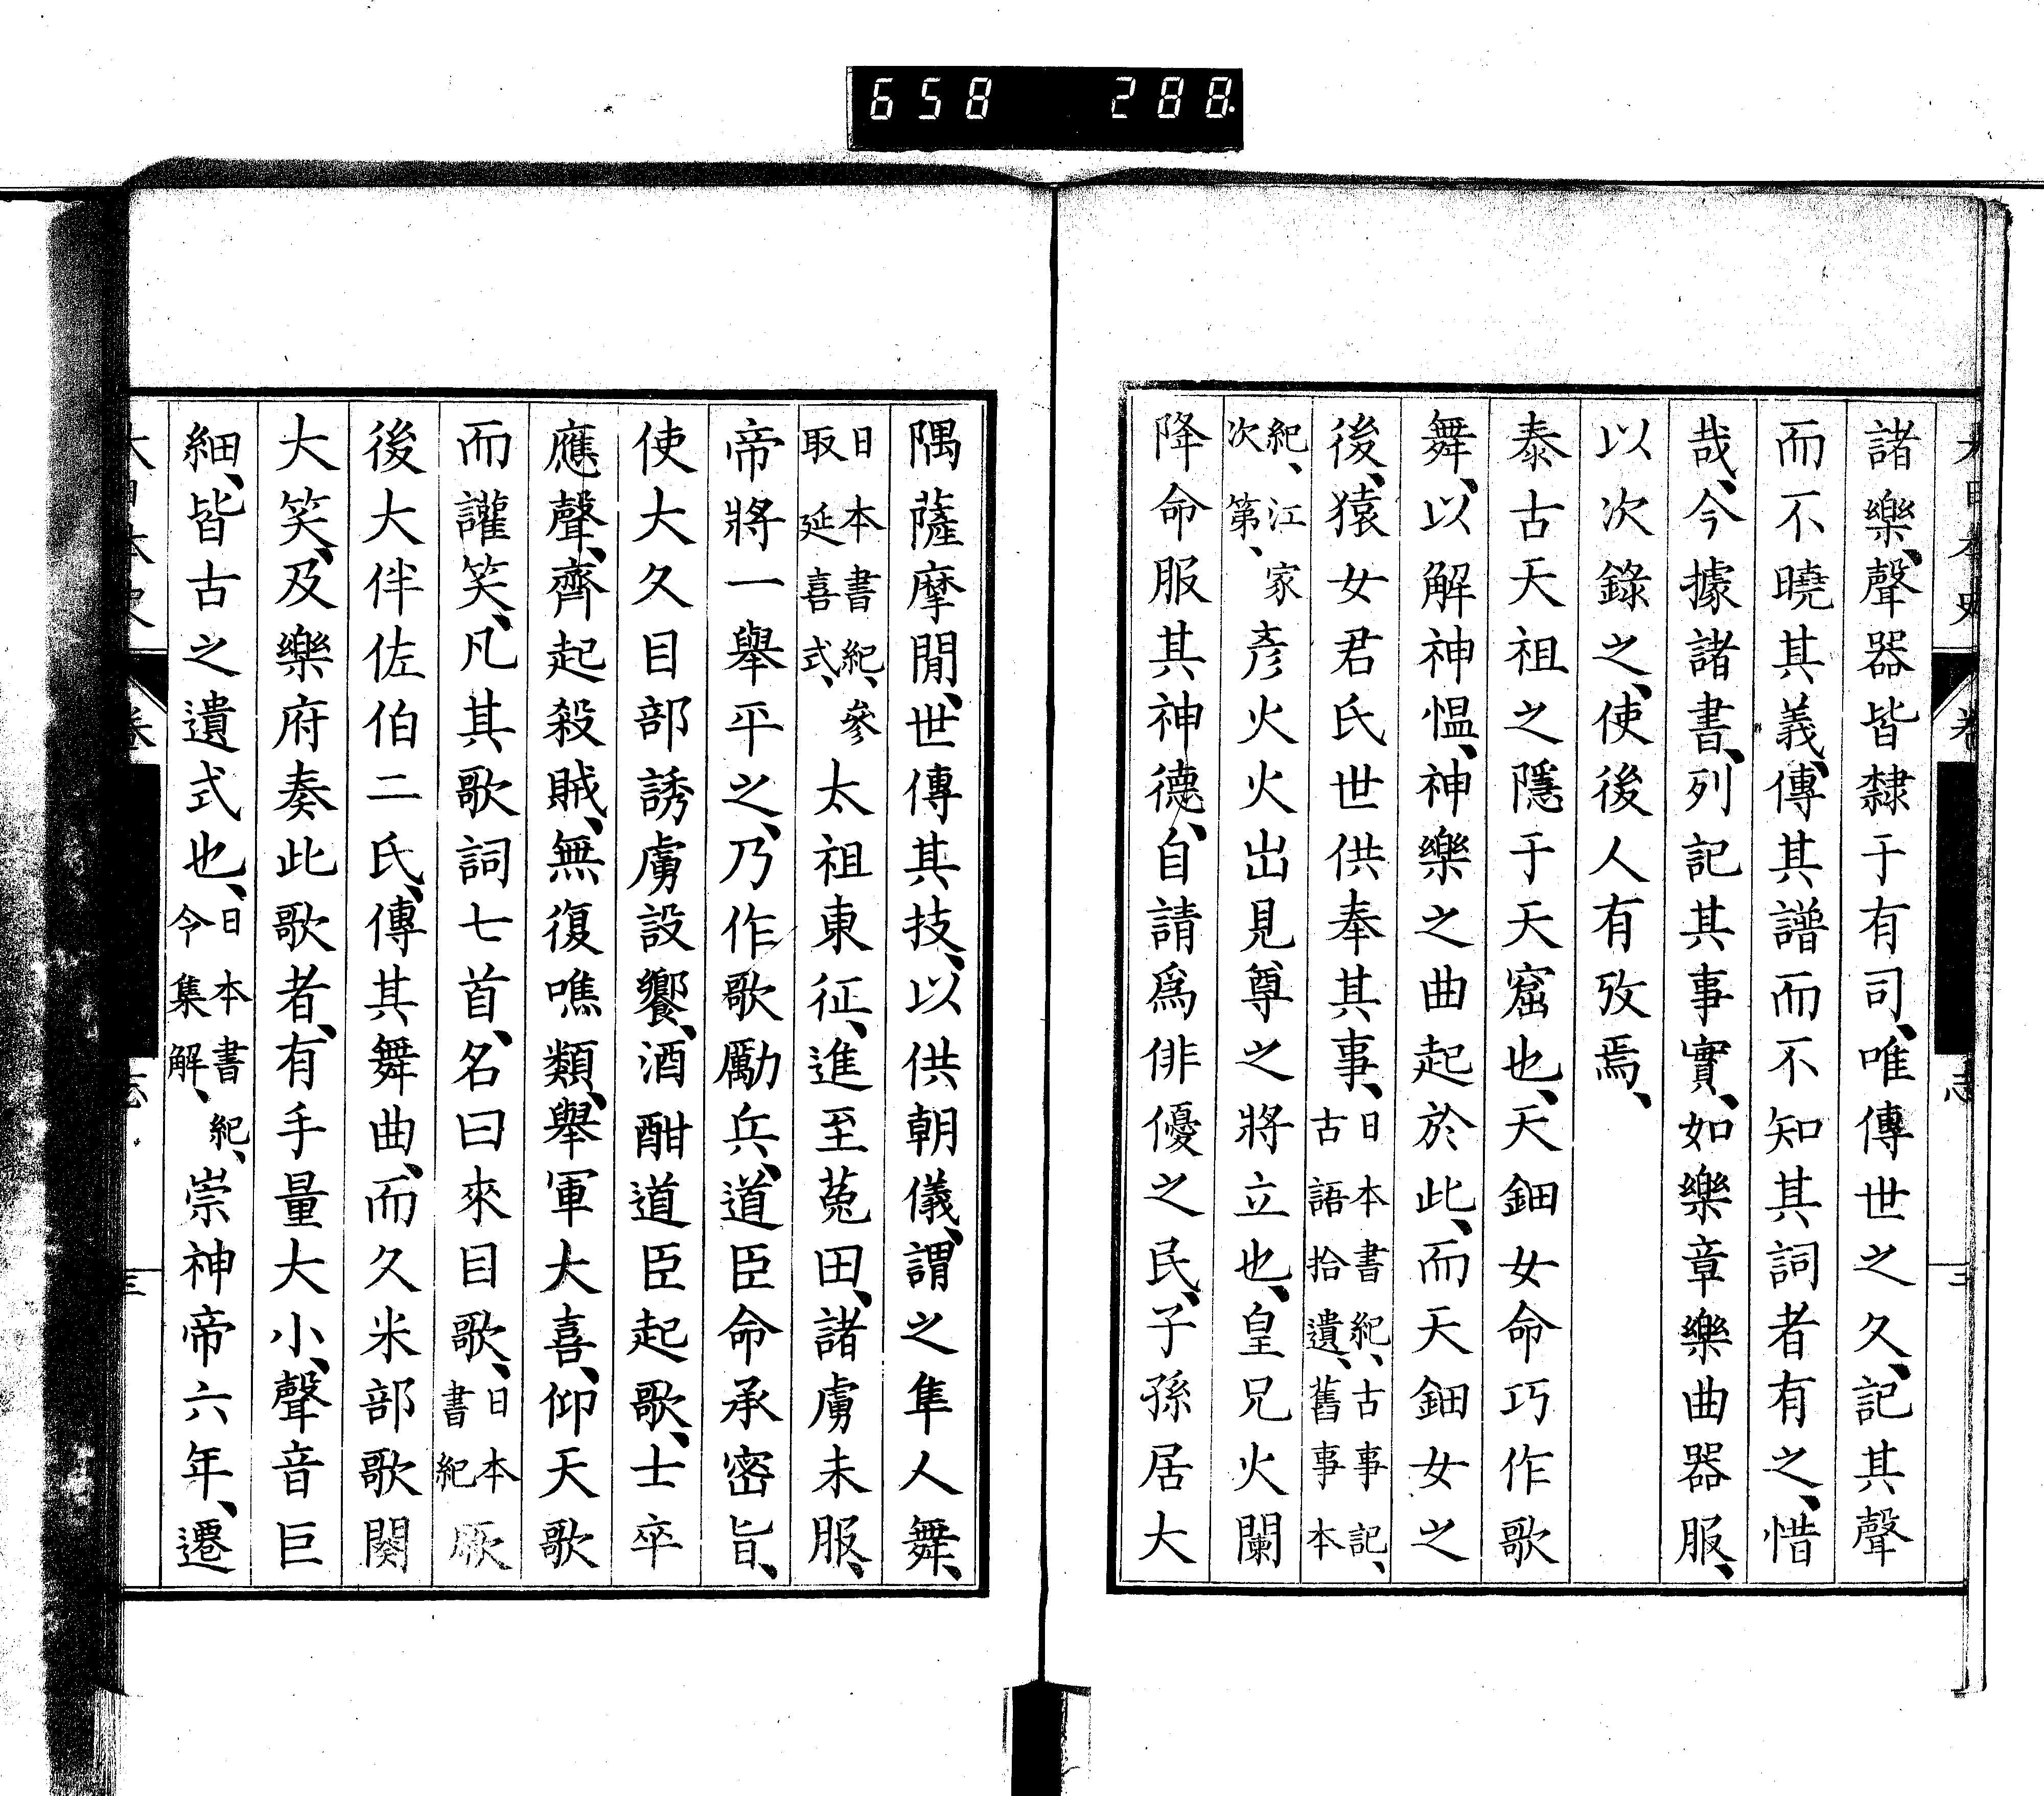 658 288
諸樂、聲器皆隸于有司、唯傳世之久、記其聲
而不曉其義、傳其譜而不知其詞者有之、惜
哉、今據諸書、列記其事實、如樂章樂曲器服、
以次錄之、使後人有攷焉、
泰古天祖之隱于天窟也、天鈿女命巧作歌
舞、以解神慍、神樂之曲起於此、而天鈿女之
後、猿女君氏世供奉其事、日本書紀、古事記、古語拾遺、舊事本
紀、江家次第、彥火火出見尊之將立也、皇兄火闌
降命服其神德、自請爲俳優之民、子孫居大
隅薩摩閒、世傳其技、以供朝儀、謂之隼人舞、
日本書紀、參取延喜式、太祖東征、進至菟田、諸虜未服、
帝將一舉平之、乃作歌勵兵、道臣命承密旨、
使大久目部誘虜設饗、酒酣道臣起歌、士卒
應聲、齊起殺賊、無復噍類、舉軍大喜、仰天歌
而讙笑、凡其歌詞七首、名曰來目歌、日本書紀
後大伴佐伯二氏、傳其舞曲、而久米部歌闋
大笑、及樂府奏此歌者、有手量大小、聲音巨
細、皆古之遺式也、日本書紀、令集解、崇神帝六年、遷